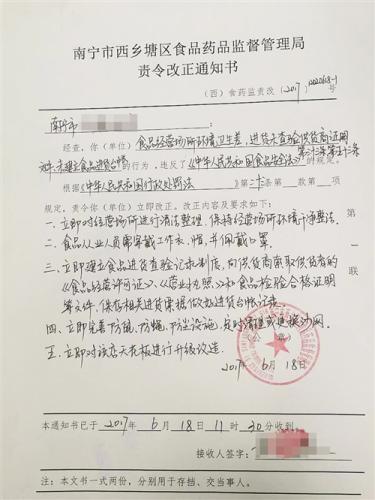 南宁市西乡塘区食品药品监督管理局
责令改正通知书
(西)食药监责改(2017)
南宁市
经查,你(单位)食品经营场所环境卫生差,进货未查验供货商证明
文件,未建立食品进货台账的行为,违反了《中华人民共和国食品安全法》第三十三条第五十三条的规定。
根据《中华人民共和国行政处罚法》第二十三条第 款第 项
规定,责令你(单位)立即改正。改正内容及要求如下:
一、立即对经营场所进行清洁整理,保持经营场所环境干净整洁。
二、食品从业人员需穿戴工作衣、帽,并佩戴口罩。
三、立即建立食品进货查验记录制度,向供货商索取供货商的
《食品经营许可证》、《营业执照》和食品检验合格证明
等文件,保存相关进货票据做好进货台帐记录。
四、立即完善防鼠、防蝇、防尘设施,及时清理或更换沙网。
五、立即对该店天花板进行升级改造。
(公章)
2017年6月18日
第一联
本通知书已于2017年6月18日11时30分收到。
接收人签字:
注:本文书一式两份,分别用于存档、交当事人。